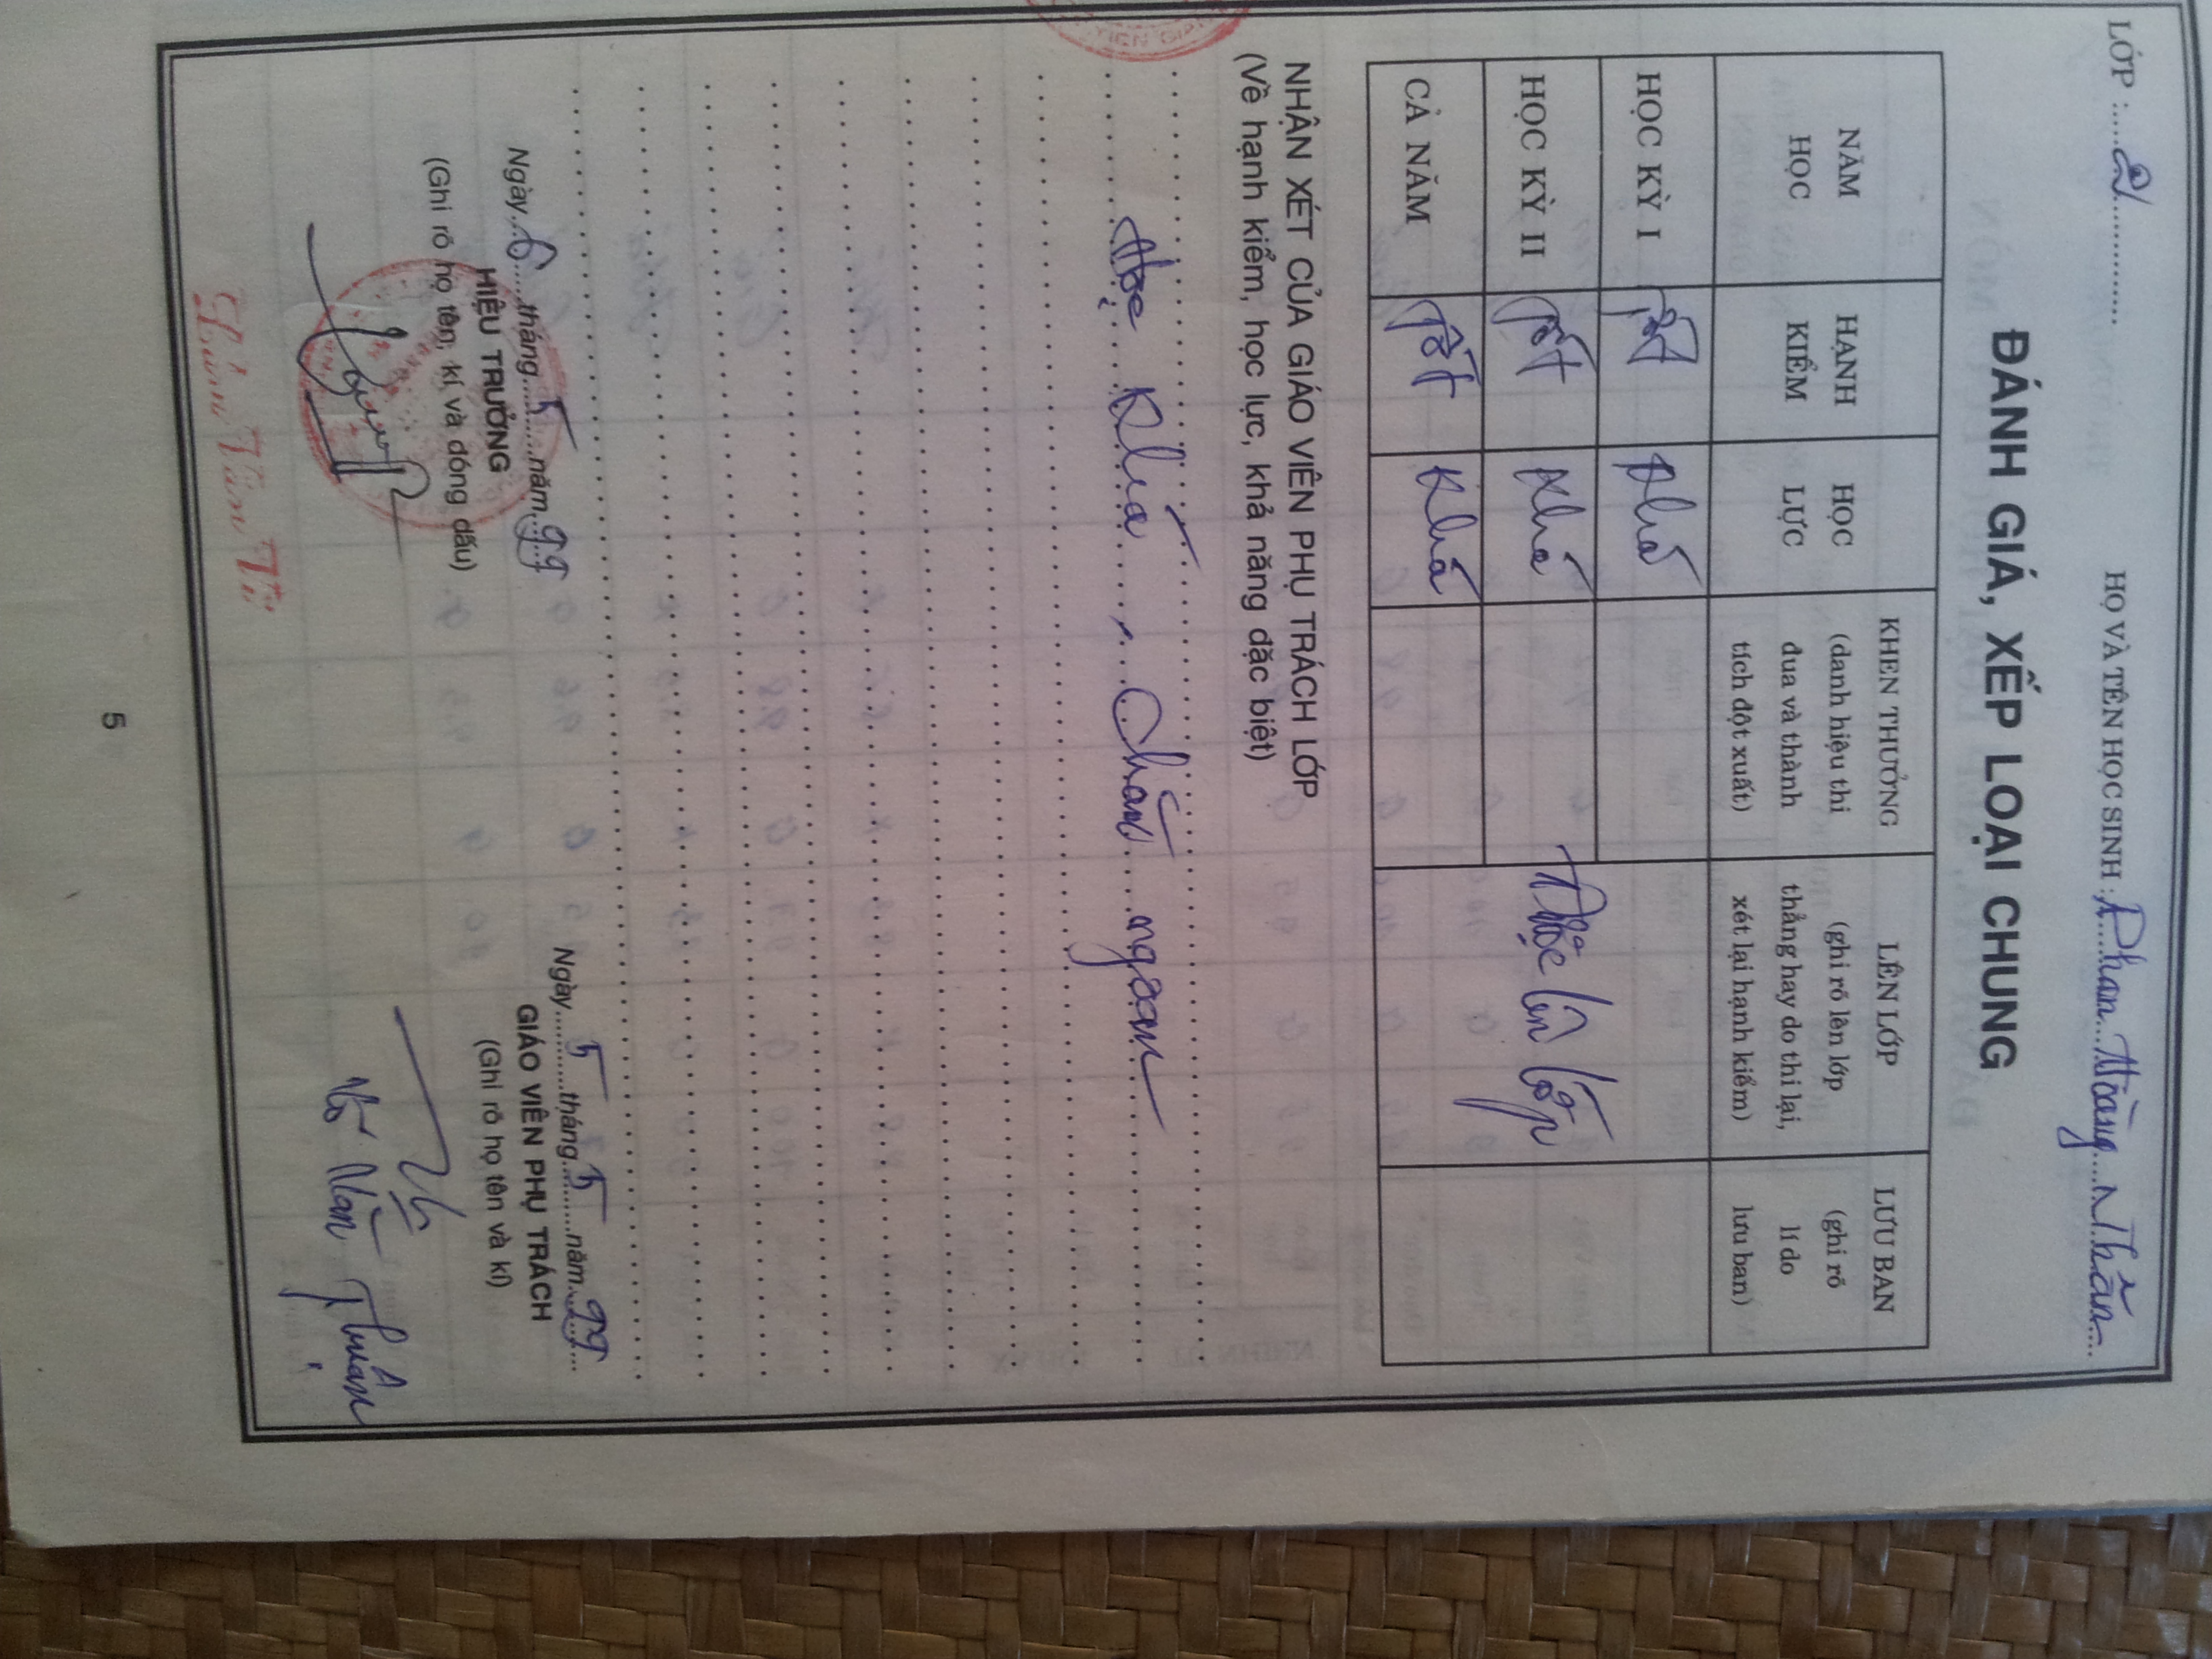 LỚP : 2 HỌ VÀ TÊN HỌC SINH : Phan Hoàng Nhân
ĐÁNH GIÁ, XẾP LOẠI CHUNG
NĂM HỌC
HẠNH KIỂM
HỌC LỰC
KHEN THƯỞNG (danh hiệu thi đua và thành tích đột xuất)
LÊN LỚP (ghi rõ lên lớp thẳng hay do thi lại, xét lại hạnh kiểm)
LƯU BAN (ghi rõ lí do lưu ban)
HỌC KỲ I Tốt Khá
HỌC KỲ II Tốt Khá
CẢ NĂM Tốt Khá
Được lên lớp
NHẬN XÉT CỦA GIÁO VIÊN PHỤ TRÁCH LỚP
(Về hạnh kiểm, học lực, khả năng đặc biệt)
Học Khá, Chăm ngoan
Ngày 6 tháng 5 năm 99
HIỆU TRƯỞNG
(Ghi rõ họ tên, kí và đóng dấu)
Ngày 5 tháng 5 năm 99
GIÁO VIÊN PHỤ TRÁCH
(Ghi rõ họ tên và kí)
Văn Thuận
Văn Từ
5